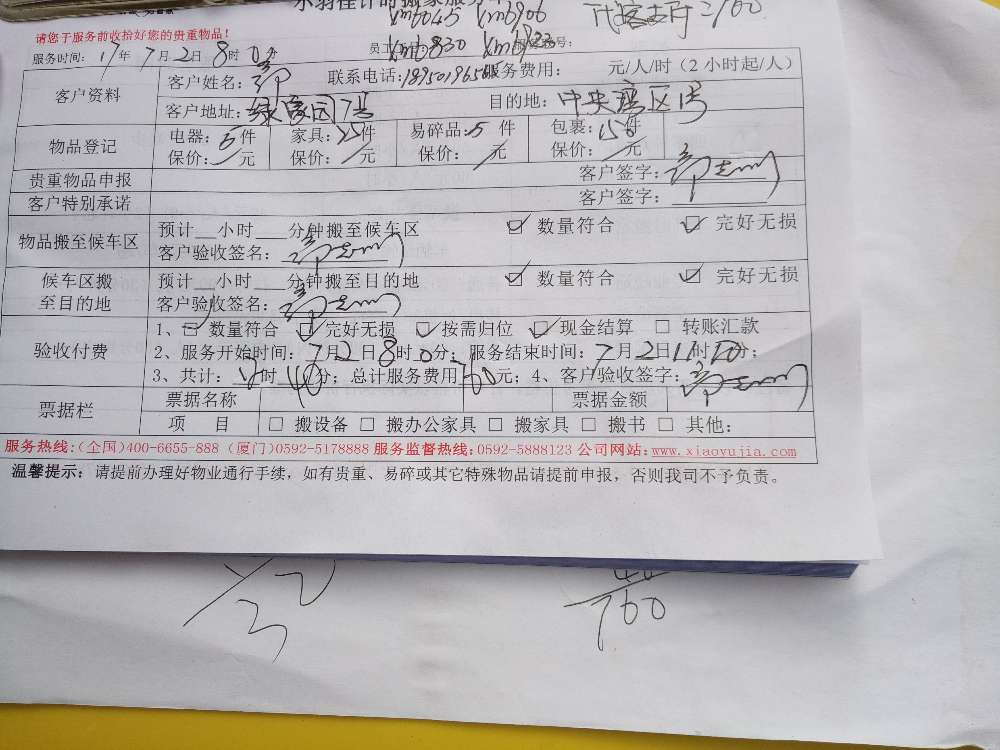 xm6045 xm6906 代客支付2100
请您于服务前收拾好您的贵重物品！
服务时间：17年7月2日8时0分 员工 xm6830
客户资料 客户姓名： 联系电话： 服务费用： 元/人/时（2小时起/人）
客户地址：绿家园7号 目的地：中央湾区1号
物品登记 电器：5件 家具：25件 易碎品：5件 包裹：15件
保价：/元 保价：/元 保价：/元 保价：/元
贵重物品申报 客户签字：
客户特别承诺 客户签字：
物品搬至候车区 预计__小时___分钟搬至候车区 ☑ 数量符合 ☑ 完好无损
客户验收签名：
候车区搬至目的地 预计__小时___分钟搬至目的地 ☑ 数量符合 ☑ 完好无损
客户验收签名：
验收付费 1、☑ 数量符合 ☑ 完好无损 ☑ 按需归位 ☑ 现金结算 □ 转账汇款
2、服务开始时间：7月2日8时0分；服务结束时间：7月2日11时 分；
3、共计： 时40分；总计服务费用760元；4、客户验收签字：
票据栏 票据名称 票据金额
项 目 □ 搬设备 □ 搬办公家具 □ 搬家具 □ 搬书 □ 其他：
服务热线：(全国)400-6655-888 (厦门)0592-5178888 服务监督热线：0592-5888123 公司网站：www.xiaoyujia.com
温馨提示：请提前办理好物业通行手续，如有贵重、易碎或其它特殊物品请提前申报，否则我司不予负责。
760